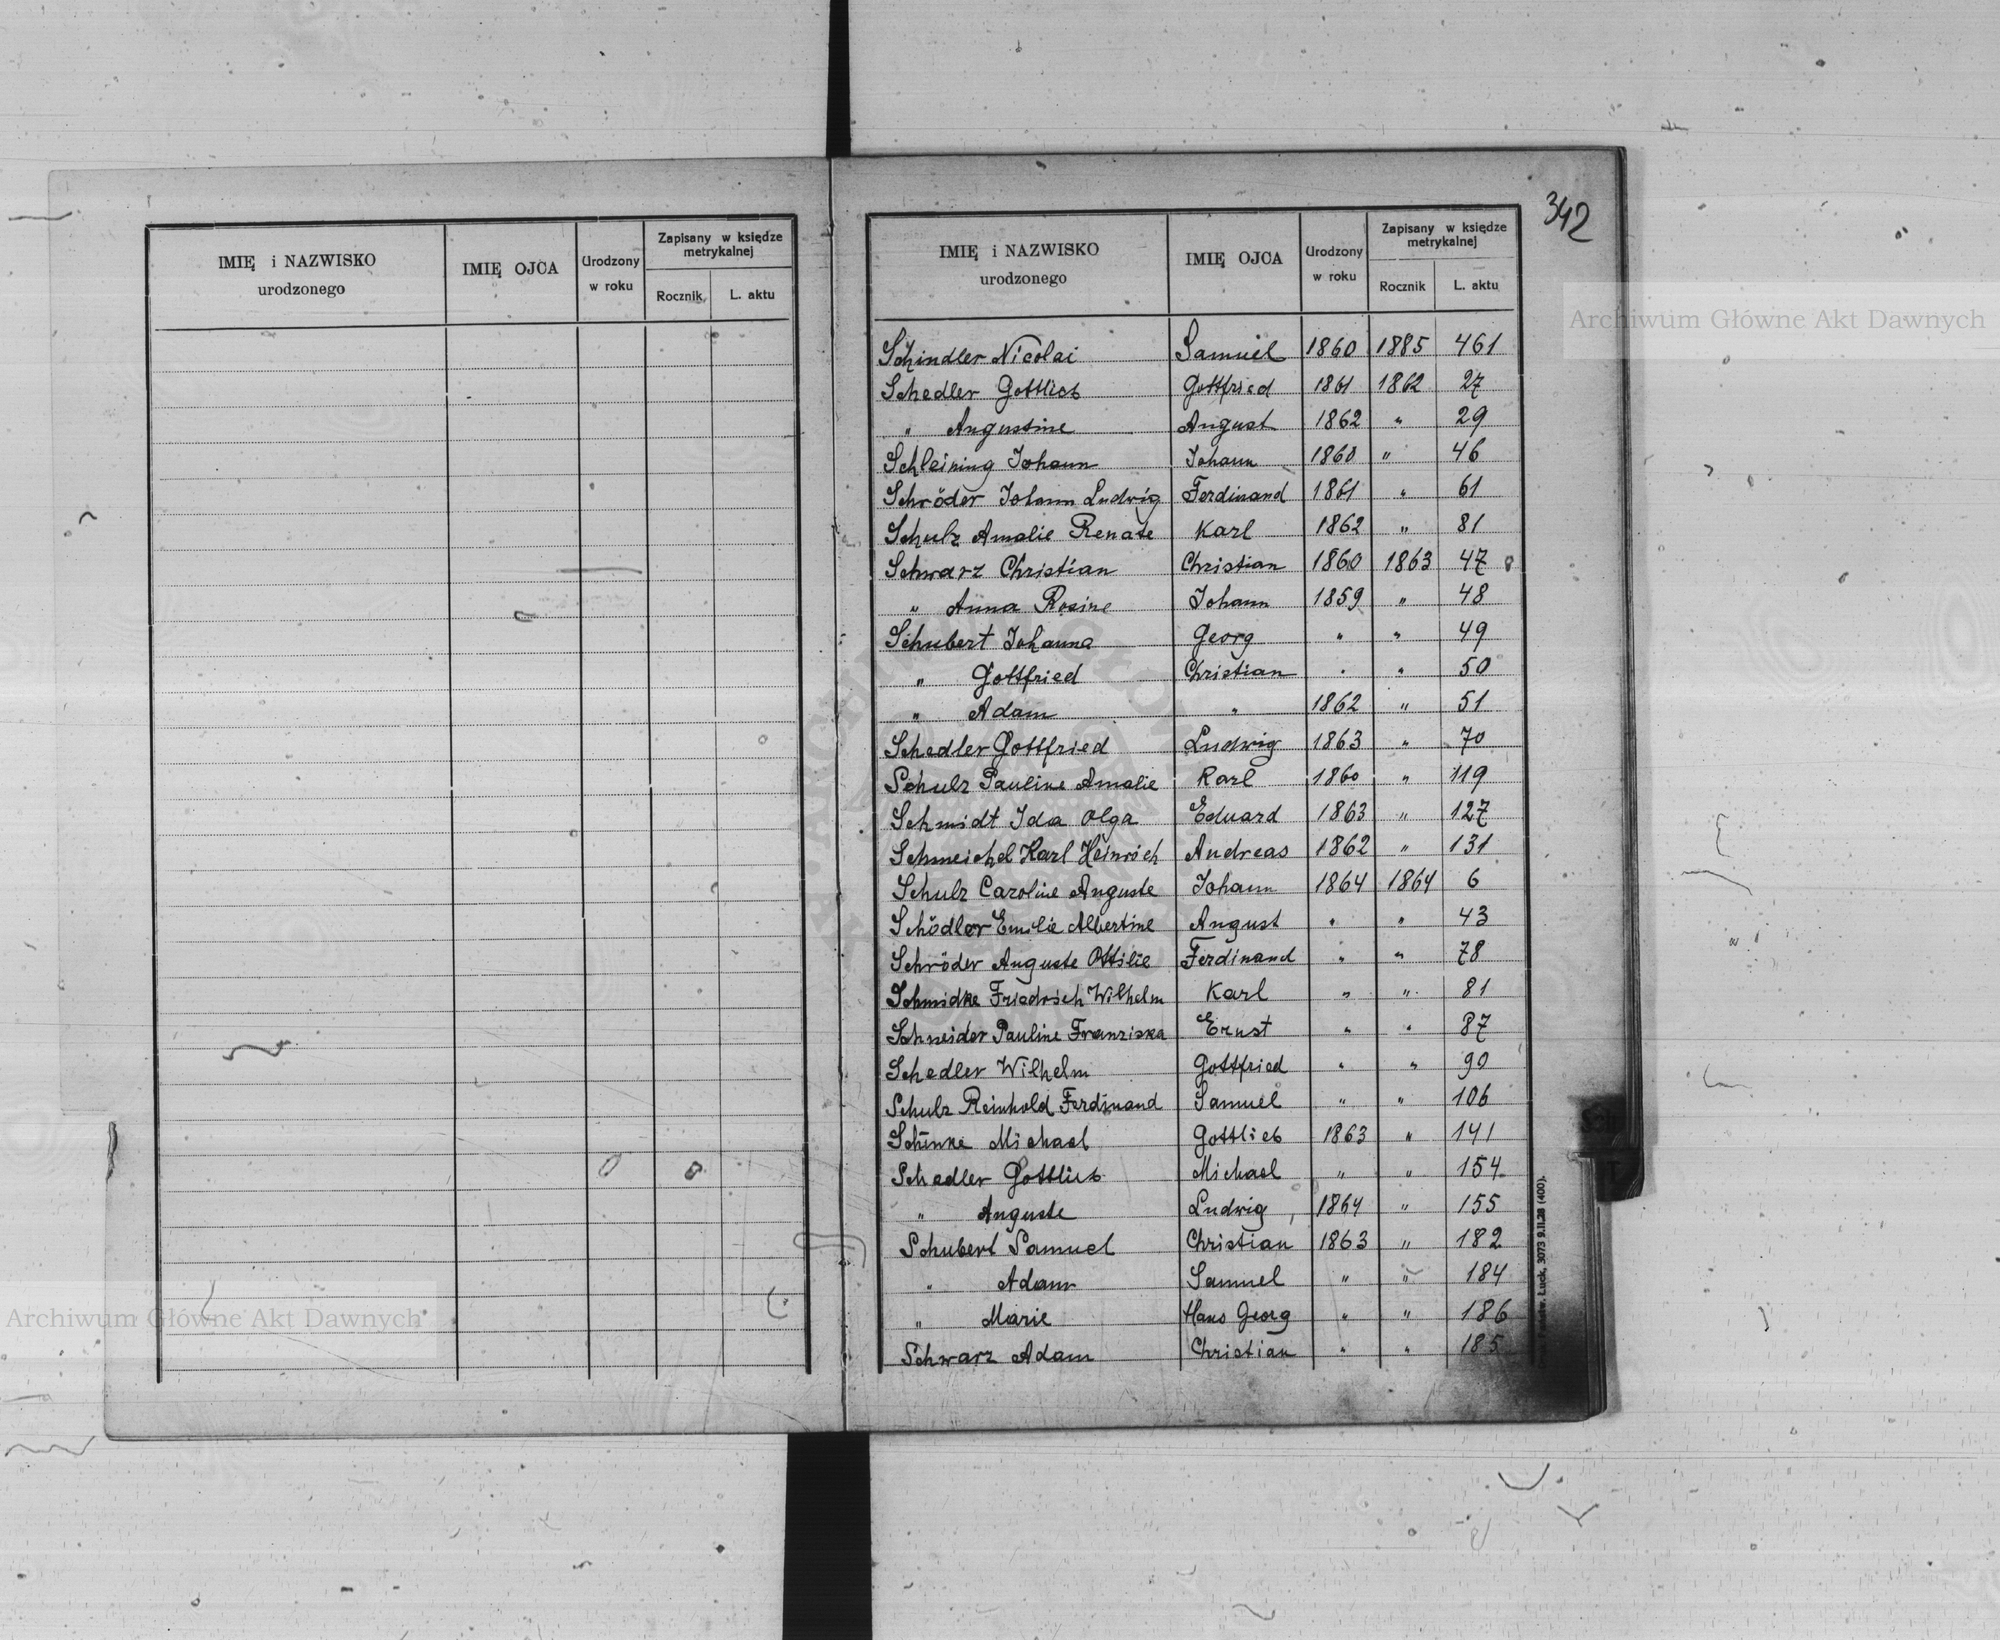 342
IMIĘ i NAZWISKO urodzonego IMIĘ OJCA Urodzony w roku Zapisany w księdze metrykalnej Rocznik L. aktu
IMIĘ i NAZWISKO urodzonego IMIĘ OJCA Urodzony w roku Zapisany w księdze metrykalnej Rocznik L. aktu
Schindler Nicolai Samuel 1860 1885 461
Schedler Gottlieb Gottfried 1861 1862 27
" Augustine August 1862 " 29
Schleining Johann Johann 1860 " 46
Schröder Johann Ludwig Ferdinand 1861 " 61
Schulz Amalie Renate Karl 1862 " 81
Schwarz Christian Christian 1860 1863 47
" Anna Rosine Johann 1859 " 48
Schubert Johanna Georg " " 49
" Gottfried Christian " " 50
" Adam " 1862 " 51
Schedler Gottfried Ludwig 1863 " 70
Schulz Pauline Amalie Karl 1860 " 119
Schmidt Ida Olga Eduard 1863 " 127
Schmeichel Karl Heinrich Andreas 1862 " 131
Schulz Caroline Auguste Johann 1864 1864 6
Schödler Emilie Albertine August " " 43
Schröder Auguste Ottilie Ferdinand " " 78
Schmidke Friedrich Wilhelm Karl " " 81
Schneider Pauline Franziska Ernst " " 87
Schedler Wilhelm Gottfried " " 90
Schulz Reinhold Ferdinand Samuel " " 106
Schinke Michael Gottlieb 1863 " 141
Schedler Gottlieb Michael " " 154
" Auguste Ludwig 1864 " 155
Schubert Samuel Christian 1863 " 182
" Adam Samuel " " 184
" Marie Hans Georg " " 186
Schwarz Adam Christian " " 185
Łuck, 3073 9.II.28 (400).
Archiwum Główne Akt Dawnych
Archiwum Główne Akt Dawnych